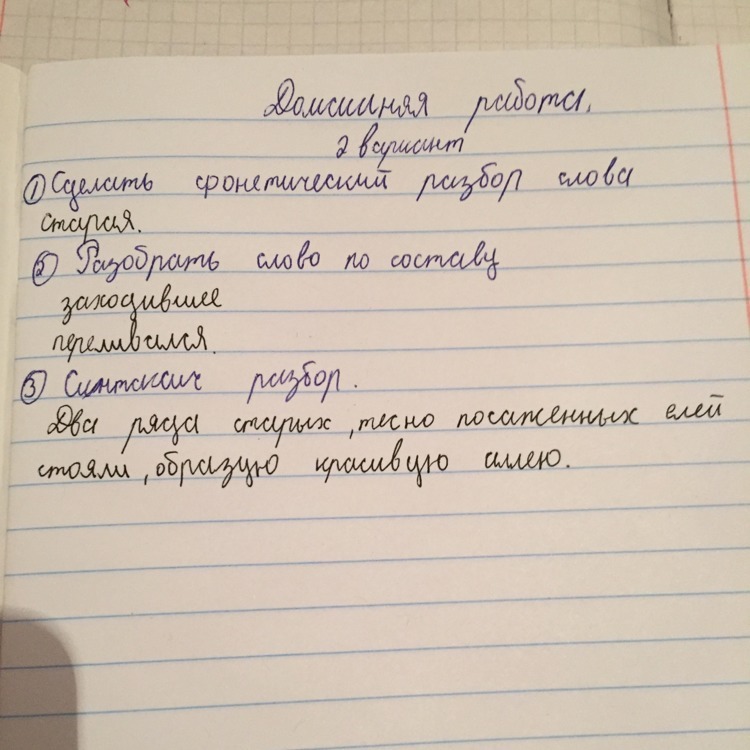 Домашняя работа.
2 вариант
① Сделать фонетический разбор слова
старая.
② Разобрать слово по составу
заходившее
переливался.
③ Синтаксич разбор.
Два ряда старых, тесно посаженных елей
стояли, образую красивую аллею.